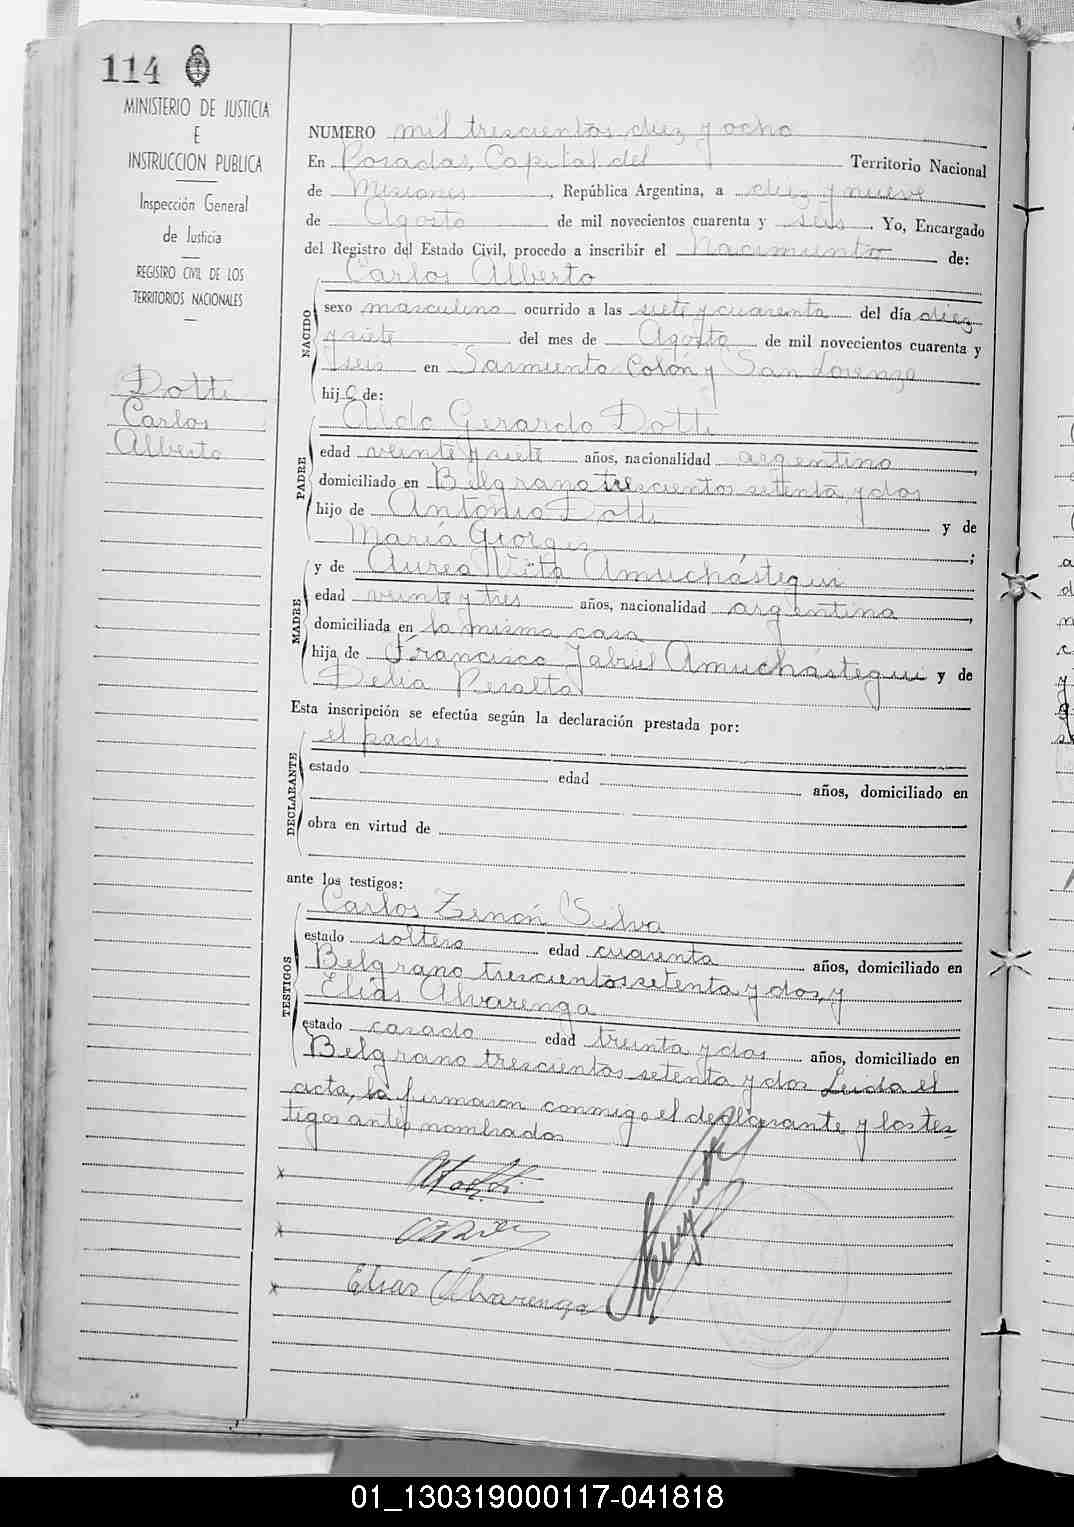 114
MINISTERIO DE JUSTICIA
E
INSTRUCCION PUBLICA
Inspección General
de Justicia
REGISTRO CIVIL DE LOS
TERRITORIOS NACIONALES
Dotti
Carlos
Alberto
NUMERO mil trescientos diez y ocho
En Posadas, Capital del Territorio Nacional
de Misiones, República Argentina, a diez y nueve
de Agosto de mil novecientos cuarenta y seis. Yo, Encargado
del Registro del Estado Civil, procedo a inscribir el Nacimiento de:
Carlos Alberto
NACIDO
sexo masculino ocurrido a las siete y cuarenta del día diez
y siete del mes de Agosto de mil novecientos cuarenta y
seis en Sarmiento Colón y San Lorenzo
hijo de:
Aldo Gerardo Dotti
PADRE
edad veinte y siete años, nacionalidad argentino,
domiciliado en Belgrano trescientos setenta y dos
hijo de Antonio Dotti y de
María Giorges;
y de Aurea Nita Amuchástegui
MADRE
edad veinte y tres años, nacionalidad argentina,
domiciliada en la misma casa
hija de Francisco Gabriel Amuchástegui y de
Delia Peralta
Esta inscripción se efectúa según la declaración prestada por:
el padre
DECLARANTE
estado edad años, domiciliado en
obra en virtud de
ante los testigos:
Carlos Zenón Silva
TESTIGOS
estado soltero edad cuarenta años, domiciliado en
Belgrano trescientos setenta y dos, y
Elías Alvarenga
estado casado edad treinta y dos años, domiciliado en
Belgrano trescientos setenta y dos Leida el
acta, la firmaron conmigo el declarante y los tes-
tigos antes nombrados
Elias Alvarenga
01_130319000117-041818